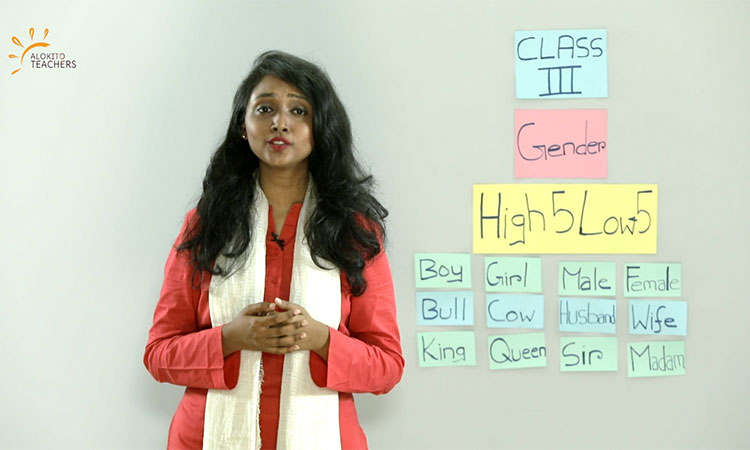 ALOKITO
TEACHERS
CLASS
III
Gender
High 5 Low 5
Boy Girl Male Female
Bull Cow Husband Wife
King Queen Sir Madam